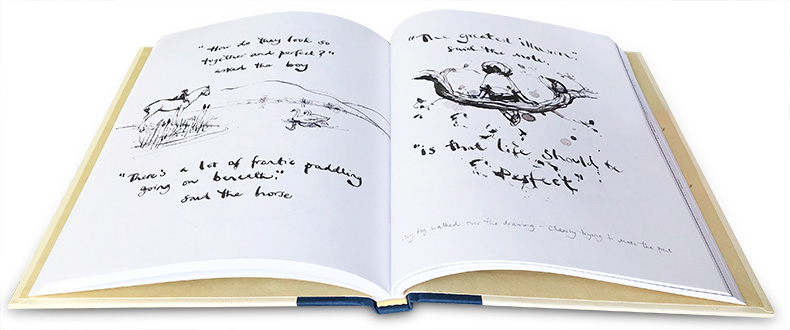 "How do they look so
together and perfect?"
asked the boy
"There's a lot of frantic paddling
going on beneath."
said the horse
"The greatest illusion",
said the mole.
"is that life should be
perfect"
my dog walked over the drawing – clearly trying to make the point